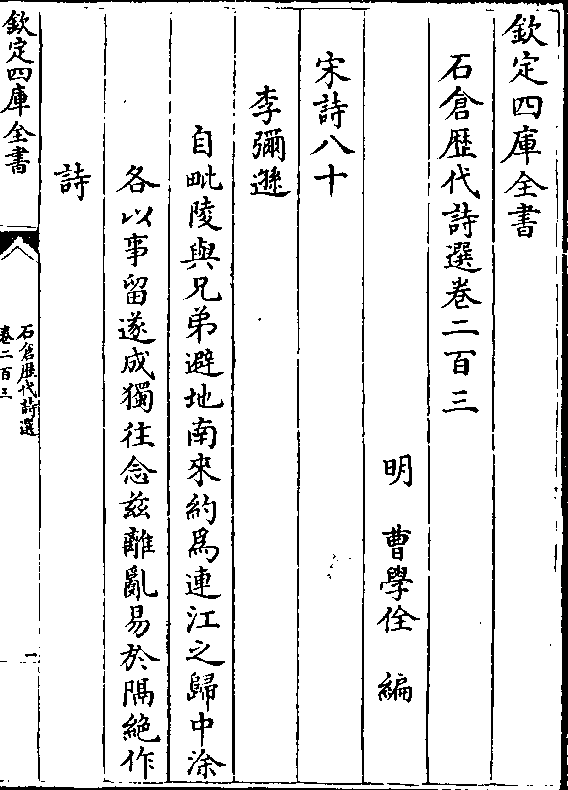 欽定四庫全書
石倉歷代詩選卷二百三
明 曹學佺 編
宋詩八十
李彌遜
自毗陵與兄弟避地南來約為連江之歸中涂
各以事留遂成獨往念兹離亂易於隔絶作
詩
欽定四庫全書
石倉歷代詩選
卷二百三
一